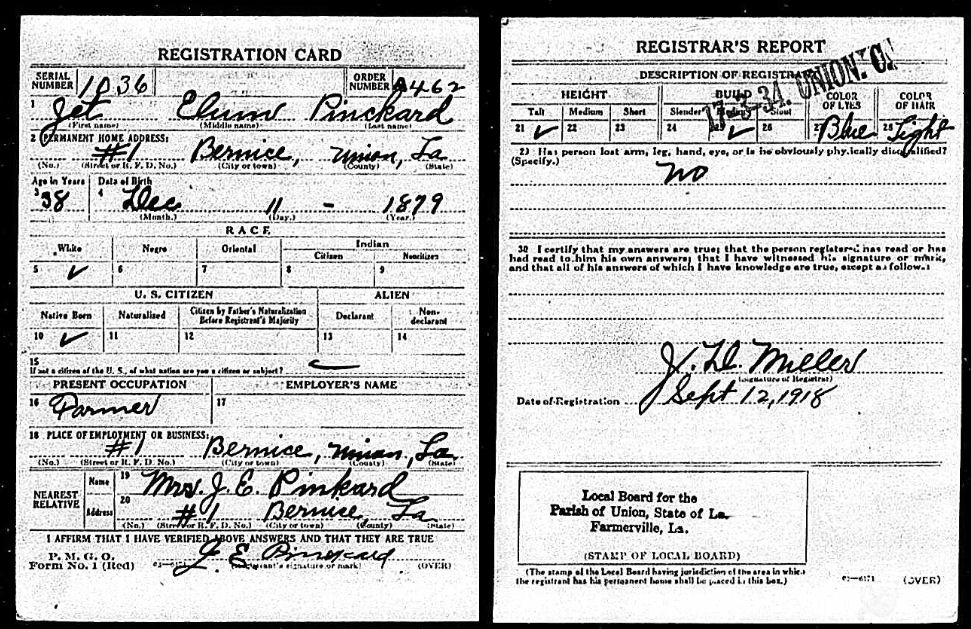 REGISTRATION CARD
SERIAL NUMBER 1036 ORDER NUMBER A462
1 Jet Elum Pinckard
(First name) (Middle name) (Last name)
2 PERMANENT HOME ADDRESS:
#1 Bernice, Union, La
(No.) (Street or R. F. D. No.) (City or town) (County) (State)
Age in Years Date of Birth
3 38 4 Dec 11 - 1879
(Month.) (Day.) (Year.)
RACE
White Negro Oriental Indian
Citizen Noncitizen
5 ✓ 6 7 8 9
U. S. CITIZEN ALIEN
Native Born Naturalized Citizen by Father's Naturalization Before Registrant's Majority Declarant Non-declarant
10 ✓ 11 12 13 14
15
If not a citizen of the U. S., of what nation are you a citizen or subject?
PRESENT OCCUPATION EMPLOYER'S NAME
16 Farmer 17
18 PLACE OF EMPLOYMENT OR BUSINESS:
#1 Bernice, Union, La
(No.) (Street or R. F. D. No.) (City or town) (County) (State)
NEAREST RELATIVE
Name 19 Mrs. J. E. Pinkard
Address 20 #1 Bernice, La
(No.) (Street or R. F. D. No.) (City or town) (County) (State)
I AFFIRM THAT I HAVE VERIFIED ABOVE ANSWERS AND THAT THEY ARE TRUE
P. M. G. O.
Form No. 1 (Red) J E Pinckard
(Registrant's signature or mark) (OVER)
REGISTRAR'S REPORT
17-3-34. UNION. C
DESCRIPTION OF REGISTRANT
HEIGHT BUILD COLOR OF EYES COLOR OF HAIR
Tall Medium Short Slender Medium Stout
21 ✓ 22 23 24 25 ✓ 26 27 Blue 28 Light
29 Has person lost arm, leg, hand, eye, or is he obviously physically disqualified?
(Specify.)
No
30 I certify that my answers are true; that the person registered has read or has
had read to him his own answers; that I have witnessed his signature or mark,
and that all of his answers of which I have knowledge are true, except as follows:
J. D. Miller
(Signature of Registrar)
Date of Registration Sept 12, 1918
Local Board for the
Parish of Union, State of La.
Farmerville, La.
(STAMP OF LOCAL BOARD)
(The stamp of the Local Board having jurisdiction of the area in which
the registrant has his permanent home shall be placed in this box.)
03-6171 (OVER)